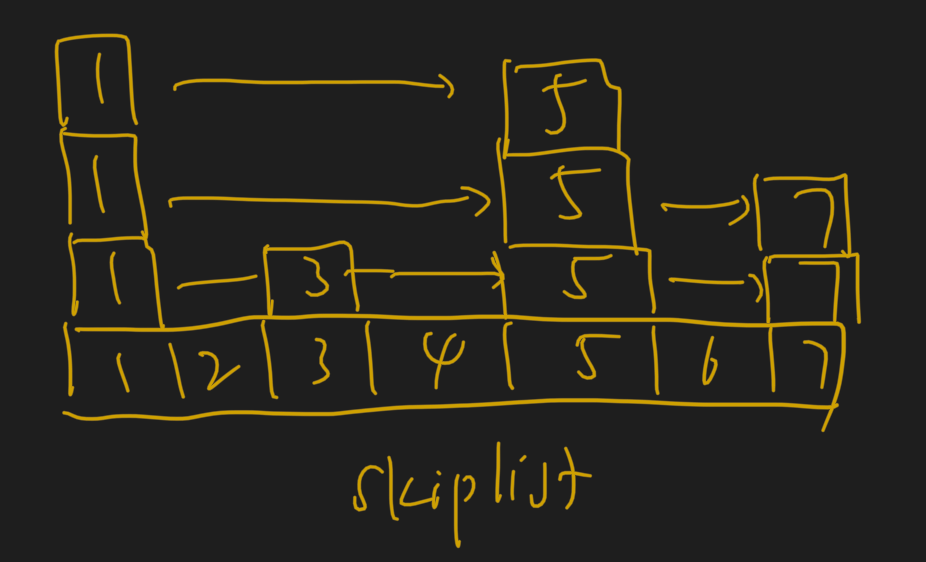 1 5
1 5 7
1 3 5 7
1 2 3 4 5 6 7
skiplist